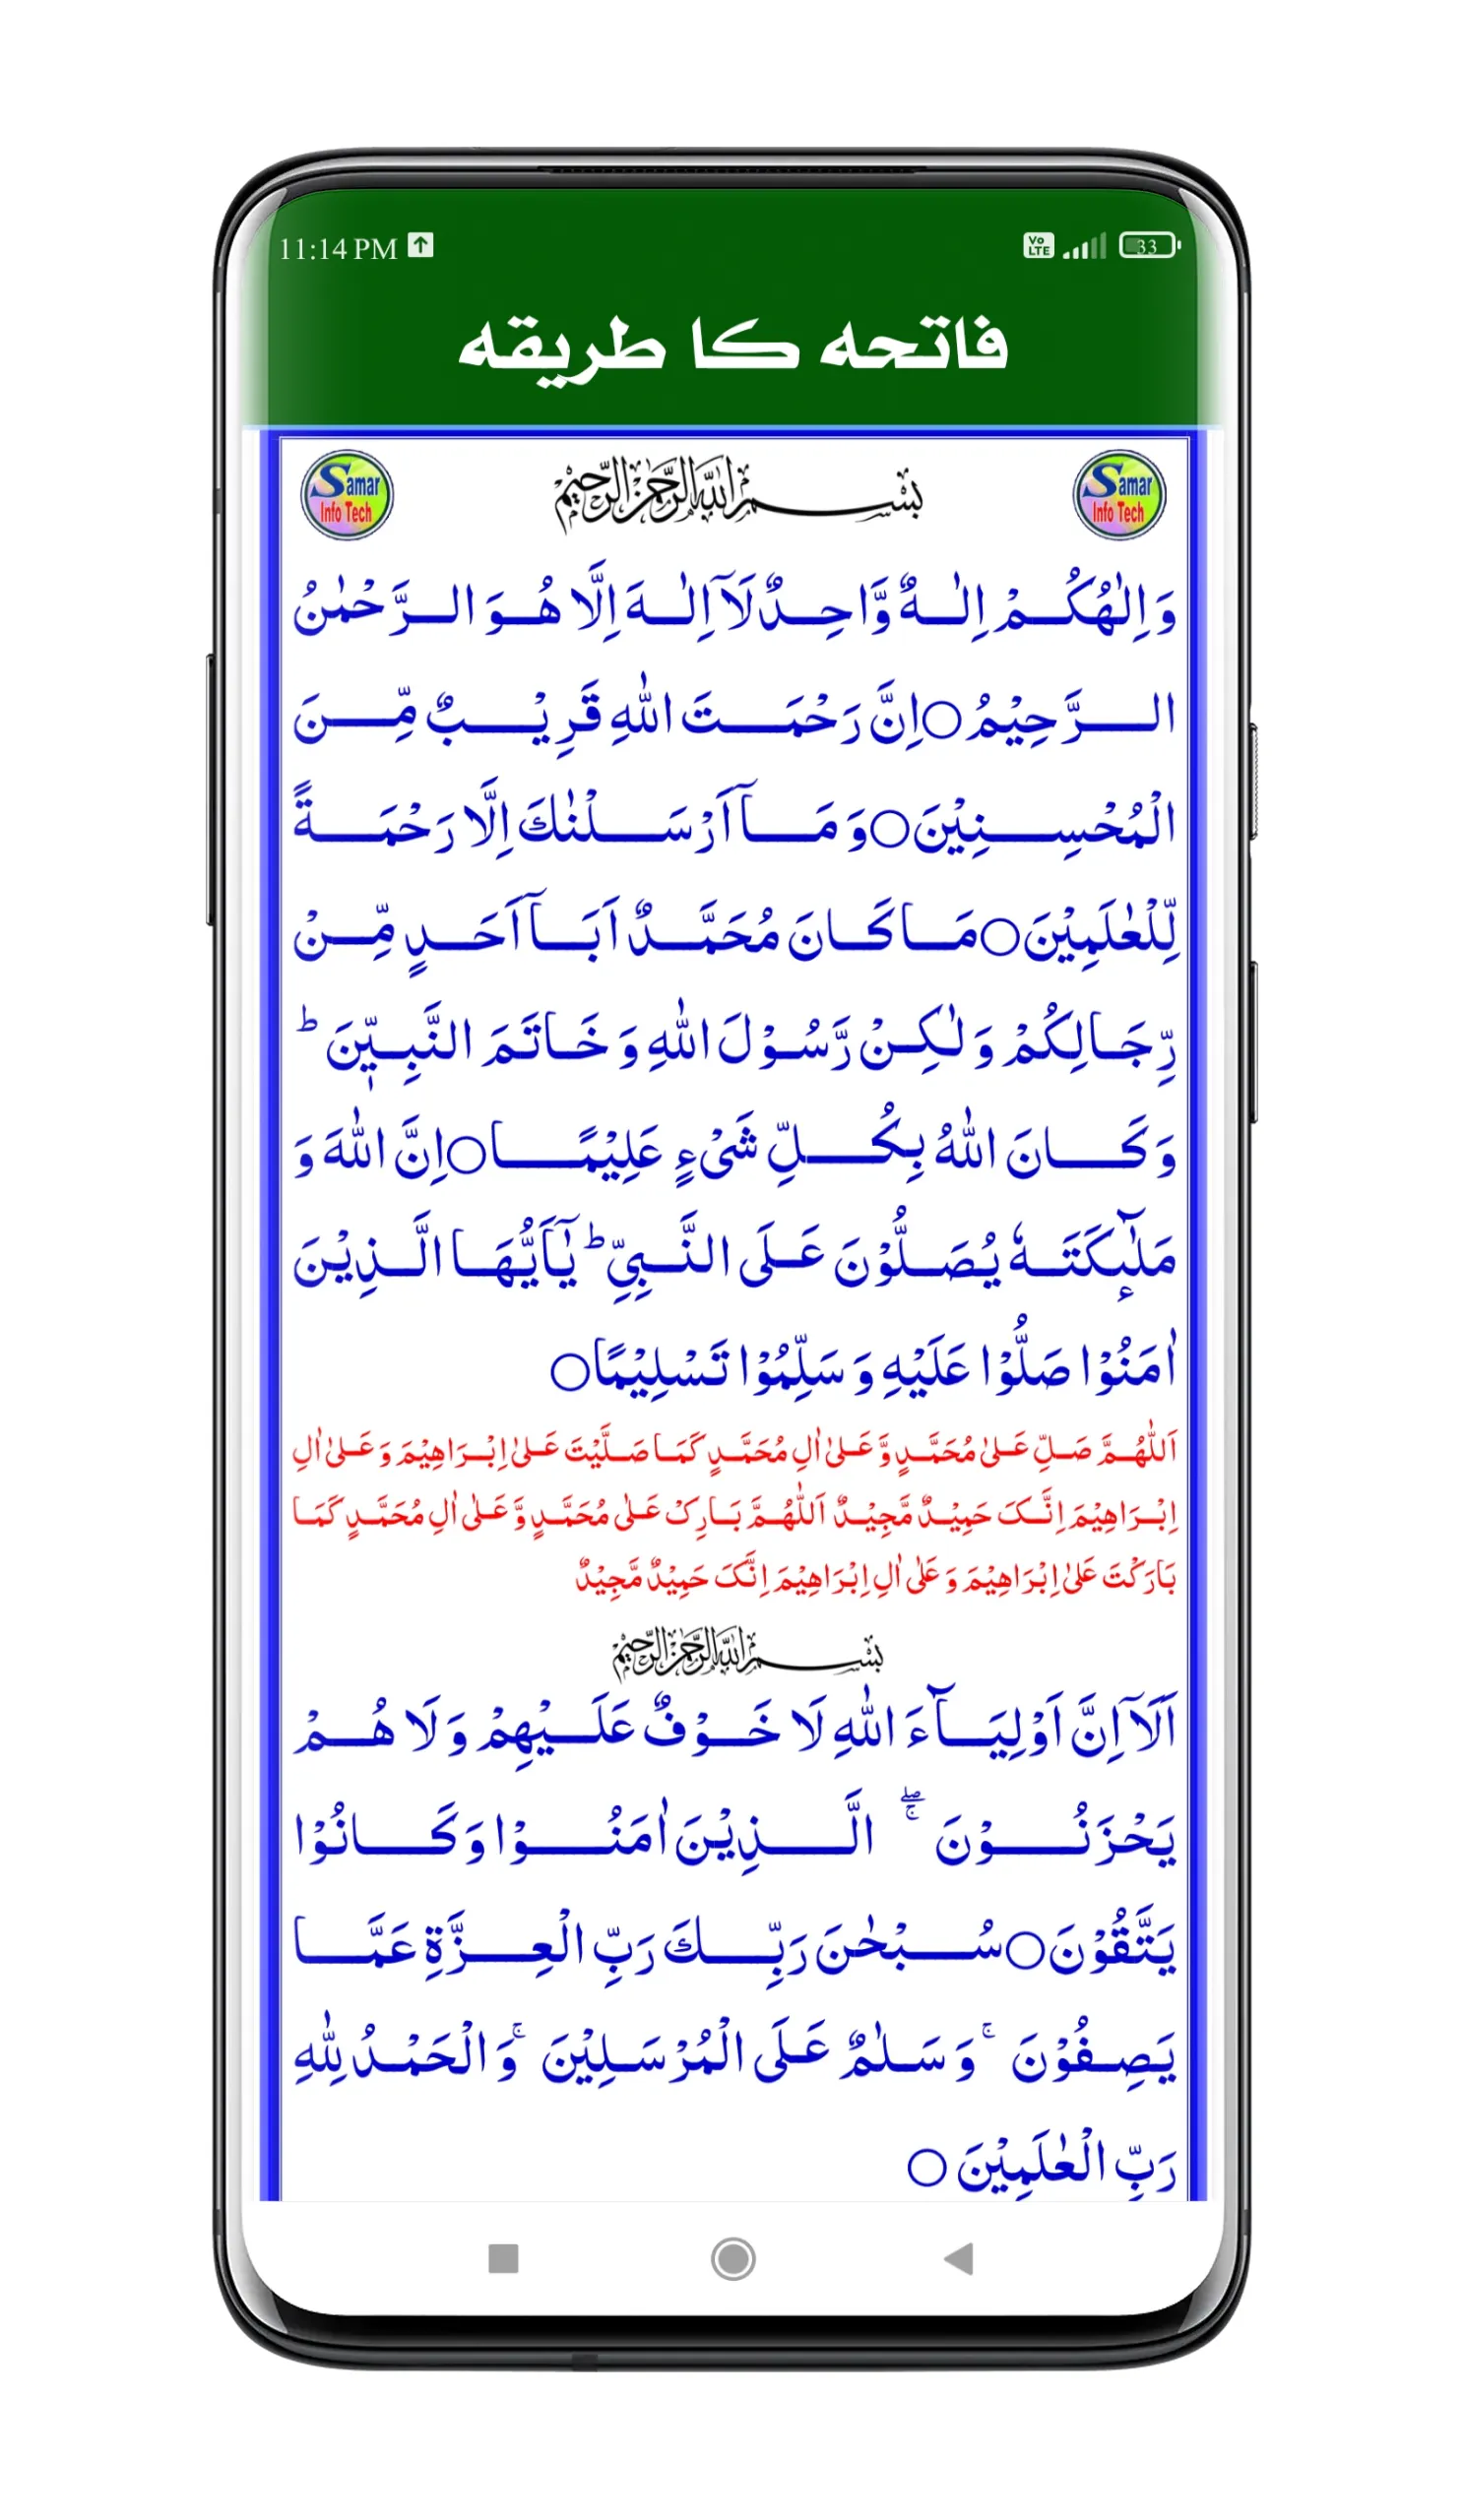 11:14 PM Vo LTE 33
فاتحہ کا طریقہ
Samar Info Tech
بِسْمِ اللّٰهِ الرَّحْمٰنِ الرَّحِيْمِ
Samar Info Tech
وَ اِلٰهُكُمْ اِلٰهٌ وَّاحِدٌ لَآ اِلٰهَ اِلَّا هُوَ الرَّحْمٰنُ
الرَّحِيْمُ○اِنَّ رَحْمَتَ اللّٰهِ قَرِيْبٌ مِّنَ
الْمُحْسِنِيْنَ○وَ مَآ اَرْسَلْنٰكَ اِلَّا رَحْمَةً
لِّلْعٰلَمِيْنَ○مَا كَانَ مُحَمَّدٌ اَبَآ اَحَدٍ مِّنْ
رِّجَالِكُمْ وَ لٰكِنْ رَّسُوْلَ اللّٰهِ وَ خَاتَمَ النَّبِيّٖنَ ؕ
وَ كَانَ اللّٰهُ بِكُلِّ شَیْءٍ عَلِيْمًا○اِنَّ اللّٰهَ وَ
مَلٰٓىِٕكَتَهٗ يُصَلُّوْنَ عَلَى النَّبِیِّ ؕ يٰٓاَيُّهَا الَّذِيْنَ
اٰمَنُوْا صَلُّوْا عَلَيْهِ وَ سَلِّمُوْا تَسْلِيْمًا○
اَللّٰهُمَّ صَلِّ عَلیٰ مُحَمَّدٍ وَّ عَلیٰ اٰلِ مُحَمَّدٍ كَمَا صَلَّيْتَ عَلیٰ اِبْرَاهِيْمَ وَ عَلیٰ اٰلِ
اِبْرَاهِيْمَ اِنَّکَ حَمِيْدٌ مَّجِيْدٌ اَللّٰهُمَّ بَارِکْ عَلیٰ مُحَمَّدٍ وَّ عَلیٰ اٰلِ مُحَمَّدٍ كَمَا
بَارَكْتَ عَلیٰ اِبْرَاهِيْمَ وَ عَلیٰ اٰلِ اِبْرَاهِيْمَ اِنَّکَ حَمِيْدٌ مَّجِيْدٌ
بِسْمِ اللّٰهِ الرَّحْمٰنِ الرَّحِيْمِ
اَلَآ اِنَّ اَوْلِيَآءَ اللّٰهِ لَا خَوْفٌ عَلَيْهِمْ وَ لَا هُمْ
يَحْزَنُوْنَ ۖۚ الَّذِيْنَ اٰمَنُوْا وَ كَانُوْا
يَتَّقُوْنَ○سُبْحٰنَ رَبِّكَ رَبِّ الْعِزَّةِ عَمَّا
يَصِفُوْنَ ۚ وَ سَلٰمٌ عَلَى الْمُرْسَلِيْنَ ۚ وَ الْحَمْدُ لِلّٰهِ
رَبِّ الْعٰلَمِيْنَ ○